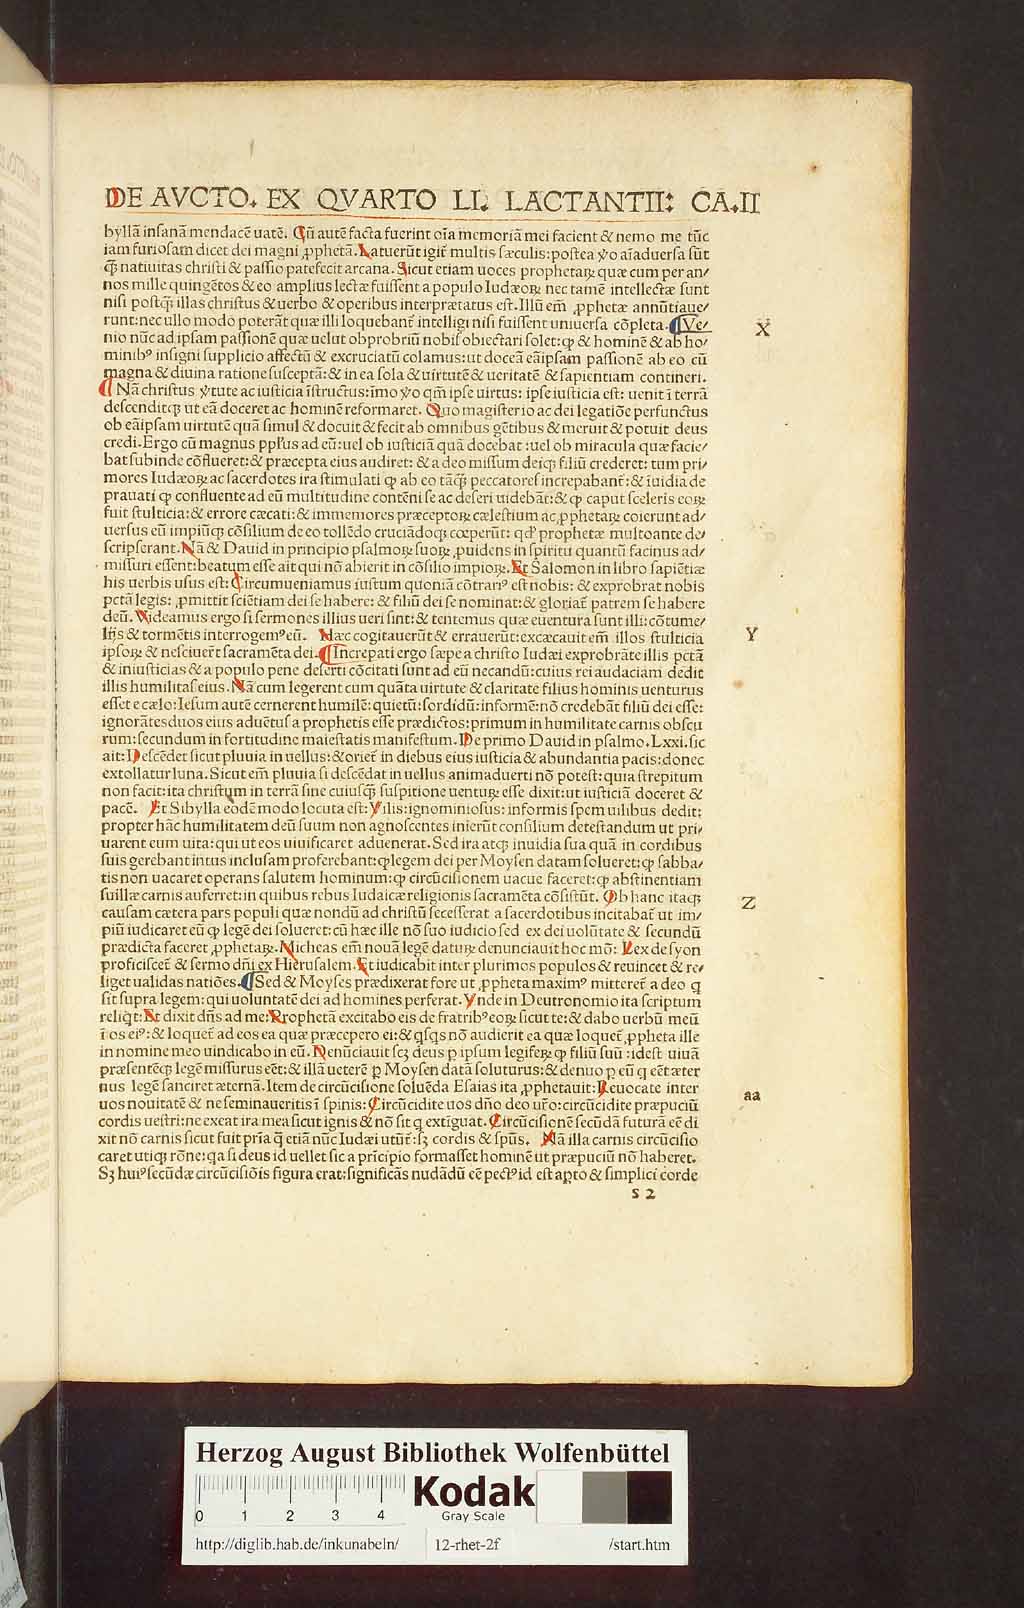 DE AVCTO. EX QVARTO LI. LACTANTII: CA.II
byllā insanā mendacē uatē. Cū autē facta fuerint oīa memoriā mei facient & nemo me tūc
iam furiosam dicet dei magni ꝓphetā. Latuerūt igiť multis sæculis: postea ỽo aīaduersa sūt
ꝙ natiuitas christi & passio patefecit arcana. Sicut etiam uoces prophetaꝝ quæ cum per an/
nos mille quingētos & eo amplius lectæ fuissent a populo Iudæoꝝ nec tamē intellectæ sunt
nisi postꝙ illas christus & uerbo & operibus interprætatus est. Illū em̄ ꝓphetæ annūtiaue/
runt: nec ullo modo poterāt quæ illi loquebanť intelligi nisi fuissent uniuersa cōpleta. ¶ Ve/
nio nūc ad ipsam passionē quæ uelut obprobriū nobis obiectari solet: ꝙ & hominē & ab ho/
minibꝰ insigni supplicio affectū & excruciatū colamus: ut doceā eāipsam passionē ab eo cū
magna & diuina ratione susceptā: & in ea sola & uirtutē & ueritatē & sapientiam contineri.
¶ Nā christus ỽtute ac iusticia īstructus: īmo ỽo qm̄ ipse uirtus: ipse iusticia est: uenit ī terrā
descenditꝙ ut eā doceret ac hominē reformaret. Quo magisterio ac dei legatiōe perfunctus
ob eāipsam uirtutē quā simul & docuit & fecit ab omnibus gētibus & meruit & potuit deus
credi. Ergo cū magnus pplus ad eū: uel ob iusticiā quā docebat: uel ob miracula quæ facie/
bat subinde cōflueret: & præcepta eius audiret: & a deo missum deiꝙ filiū crederet: tum pri/
mores Iudæoꝝ ac sacerdotes ira stimulati ꝙ ab eo tāꝙ peccatores increpabanť: & īuidia de
prauati ꝙ confluente ad eū multitudine contēni se ac deseri uidebāt: & ꝙ caput sceleris eoꝝ
fuit stulticia: & errore cæcati: & immemores præceptoꝝ cælestium ac ꝓphetaꝝ coierunt ad/
uersus eū impiūꝙ cōsilium de eo tollēdo cruciādoꝙ cœperūt: qđ prophetæ multo ante de/
scripserant. Nā & Dauid in principio psalmoꝝ suoꝝ ꝓuidens in spiritu quantū facinus ad/
missuri essent: beatum esse ait qui nō abierit in cōsilio impioꝝ. Et Salomon in libro sapiētiæ
his uerbis usus est: Circumueniamus iustum quoniā cōtrarꝰ est nobis: & exprobrat nobis
pctā legis: ꝓmittit sciētiam dei se habere: & filiū dei se nominat: & gloriať patrem se habere
deū. Videamus ergo si sermones illius ueri sint: & tentemus quæ euentura sunt illi: cōtume/
liis & tormētis interrogemꝰ eū. Hæc cogitauerūt & errauerūt: excæcauit em̄ illos stulticia
ipsoꝝ & nesciuerūt sacramēta dei. ¶ Increpati ergo sæpe a christo Iudæi exprobrāte illis pctā
& iniusticias & a populo pene deserti cōcitati sunt ad eū necandū: cuius rei audaciam dedit
illis humilitas eius. Nā cum legerent cum quāta uirtute & claritate filius hominis uenturus
esset e cælo: Iesum autē cernerent humilē: quietū: sordidū: informē: nō credebāt filiū dei esse:
ignorātes duos eius aduētus a prophetis esse prædictos: primum in humilitate carnis obscu
rum: secundum in fortitudine maiestatis manifestum. De primo Dauid in psalmo. Lxxi. sic
ait: Descēdet sicut pluuia in uellus: & orieť in diebus eius iusticia & abundantia pacis: donec
extollatur luna. Sicut em̄ pluuia si descēdat in uellus animaduerti nō potest: quia strepitum
non facit: ita christum in terrā sine cuiusꝙ suspitione uentuꝝ esse dixit: ut iusticiā doceret &
pacē. Et Sibylla eodē modo locuta est: Vilis: ignominiosus: informis spem uilibus dedit:
propter hāc humilitatem deū suum non agnoscentes inierūt consilium detestandum ut pri/
uarent eum uita: qui ut eos uiuificaret aduenerat. Sed ira atꝙ inuidia sua quā in cordibus
suis gerebant intus inclusam proferebant: ꝙ legem dei per Moysen datam solueret: ꝙ sabba/
tis non uacaret operans salutem hominum: ꝙ circūcisionem uacue faceret: ꝙ abstinentiam
suillæ carnis auferret: in quibus rebus Iudaicæ religionis sacramēta cōsistūt. Ob hanc itaꝙ
causam cætera pars populi quæ nondū ad christū secesserat a sacerdotibus incitabať ut im/
piū iudicaret eū ꝙ legē dei solueret: cū hæc ille nō suo iudicio sed ex dei uolūtate & secundū
prædicta faceret ꝓphetaꝝ. Micheas em̄ nouā legē datuꝝ denunciauit hoc mō: Lex de syon
proficisceť & sermo dn̄i ex Hierusalem. Et iudicabit inter plurimos populos & reuincet & re/
liget ualidas natiōes. ¶ Sed & Moyses prædixerat fore ut ꝓpheta maximꝰ mittereť a deo q
sit supra legem: qui uoluntatē dei ad homines perferat. Vnde in Deutronomio ita scriptum
reliq̄t: Et dixit dn̄s ad me: Prophetā excitabo eis de fratribꝰ eoꝝ sicut te: & dabo uerbū meū
ī os eiꝰ: & loqueť ad eos ea quæ præcepero ei: & q̄sq̄s nō audierit ea quæ loqueť ꝓpheta ille
in nomine meo uindicabo in eū. Denūciauit sꝫ deus ꝑ ipsum legiferꝝ ꝙ filiū suū: idest uiuā
præsentēꝙ legē missurus eēt: & illā ueterē ꝑ Moysen datā soluturus: & denuo ꝑ eū q eēt æter
nus legē sanciret æternā. Item de circūcisione soluēda Esaias ita ꝓphetauit: Reuocate inter
uos nouitatē & ne seminaueritis ī spinis: Circūcidite uos dn̄o deo uro: circūcidite præpuciū
cordis uestri: ne exeat ira mea sicut ignis & nō sit q extīguat. Circūcisionē secūdā futurā eē di
xit nō carnis sicut fuit pria q̄ etiā nūc Iudæi utūť: sꝫ cordis & spūs. Nā illa carnis circūcisio
caret utiqꝫ rōne: qa si deus id uellet sic a prīcipio formasset hominē ut præpuciū nō haberet.
Sꝫ huiꝰ secūdæ circūcisiōis figura erat: significās nudādū eē pectꝰ id est apto & simplici corde
s 2
X
Y
Z
aa
Herzog August Bibliothek Wolfenbüttel
0 1 2 3 4
Kodak
Gray Scale
http://diglib.hab.de/inkunabeln/ 12-rhet-2f /start.htm